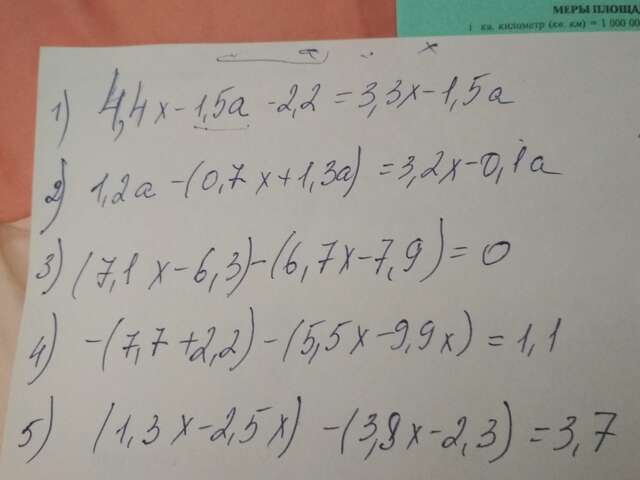 МЕРЫ ПЛОЩАД
1 кв. километр (кв. км) = 1 000 00
x
1) 4,4x-1,5a-2,2=3,3x-1,5a
2) 1,2a-(0,7x+1,3a)=3,2x-0,1a
3) (7,1x-6,3)-(6,7x-7,9)=0
4) -(7,7+2,2)-(5,5x-9,9x)=1,1
5) (1,3x-2,5x)-(3,9x-2,3)=3,7